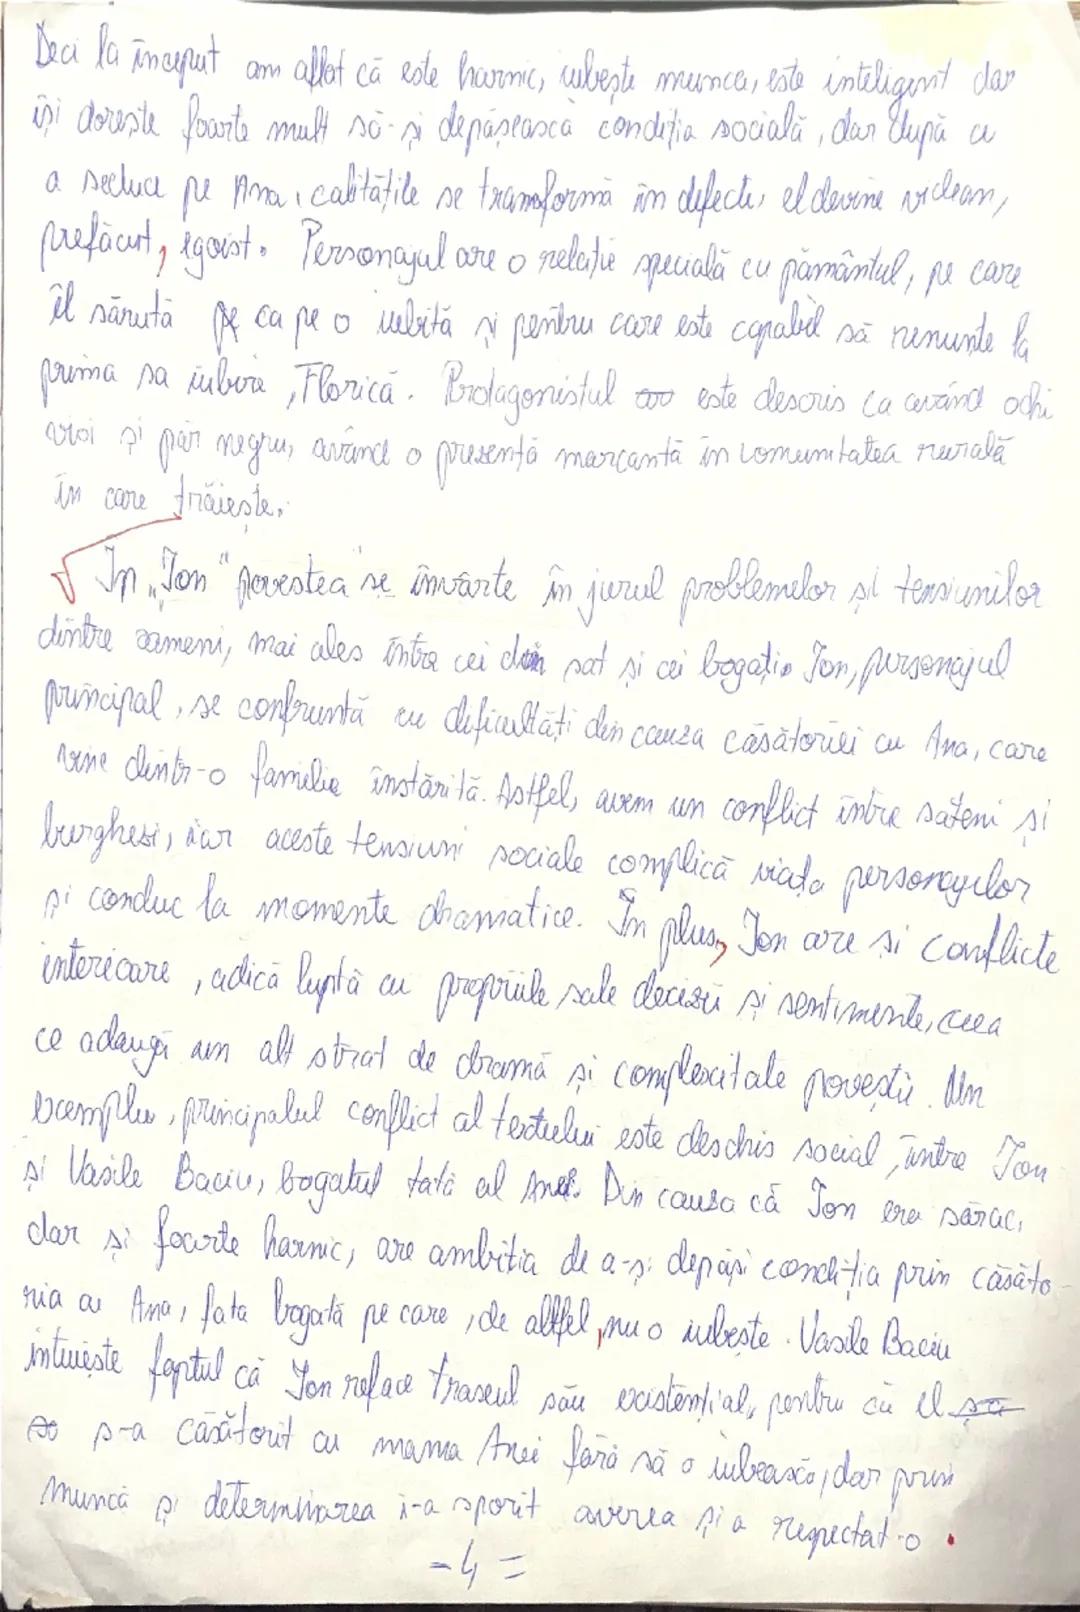 Deci la început am aflat că este harnic, iubește munca, este inteligent dar
își dorește foarte mult să-și depășească condiția socială, dar după ce
a seduce pe Ana, calitățile se transformă în defecte, el devine viclean,
prefăcut, egoist. Personajul are o relație specială cu pământul, pe care
îl sărută ca pe o iubită și pentru care este capabil să renunțe la
prima sa iubire, Florică. Protagonistul este descris ca având ochi
vioi și păr negru, având o prezență marcantă în comunitatea rurală
în care trăiește.
In „Ion" povestea se învârte în jurul problemelor și tensiunilor
dintre oameni, mai ales între cei din sat și cei bogați. Ion, personajul
principal, se confruntă cu deficultăți din cauza căsătoriei cu Ana, care
vine dintr-o familie înstărită. Astfel, avem un conflict între săteni și
burghezi, iar aceste tensiuni sociale complică viața personajelor
și conduc la momente dramatice. În plus, Ion are și conflicte
interioare, adică luptă cu propriile sale decizii și sentimente, ceea
ce adaugă un alt strat de dramă și complexitate poveștii. Un
exemplu, principalul conflict al textului este deschis social, între Ion
și Vasile Baciu, bogatul tată al Anei. Din cauza că Ion era sărac,
dar și foarte harnic, are ambiția de a-și depăși condiția prin căsăto-
ria cu Ana, fata bogată pe care, de altfel, nu o iubește. Vasile Baciu
intuiește faptul că Ion reface traseul său existențial, pentru că el
s-a căsătorit cu mama Anei fără să o iubească, dar prin
muncă și determinarea i-a sporit averea și a respectat-o.
- 4 -